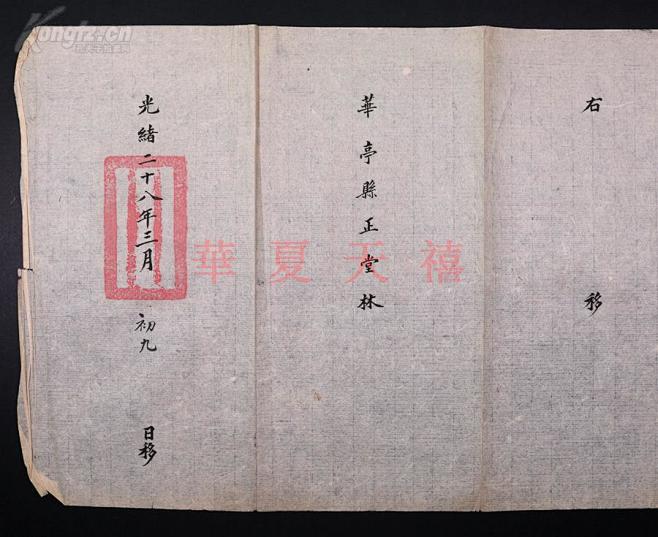 右 移
華亭縣正堂林
光緒二十八年三月 初九 日移
華夏天禧
Kongfz.cn